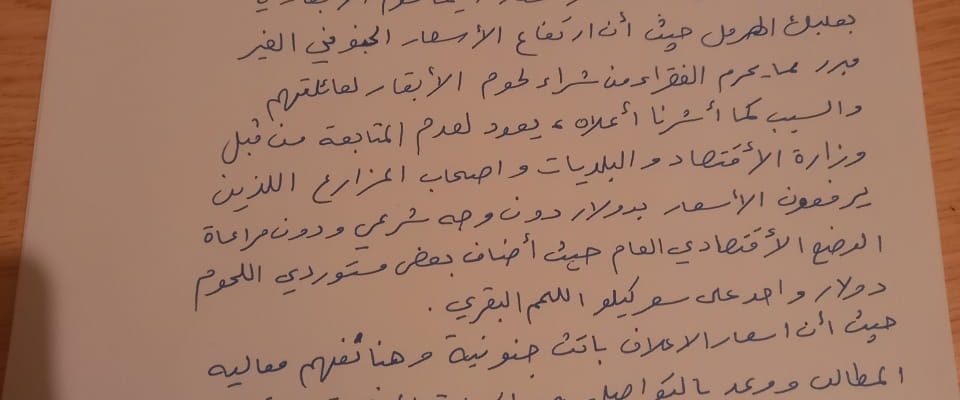 بعلبك الهرمل حيث أن ارتفاع الأسعار الجنوني الغير
مبرر مما يحرم الفقراء من شراء لحوم الأبقار لعائلتهم
والسبب كما أشرنا أعلاه، يعود لعدم المتابعة من قبل
وزارة الأقتصاد والبلديات واصحاب المزارع اللذين
يرفعون الأسعار بدولار دون وجه شرعي ودون مراعاة
الوضع الأقتصادي العام حيث أضاف بعض مستوردي اللحوم
دولار واحد على سعر كيلو اللحم البقري.
حيث أن اسعار الاعلاف باتت جنونية وهنا تفهم معاليه
المطالب ووعد بالتواصل